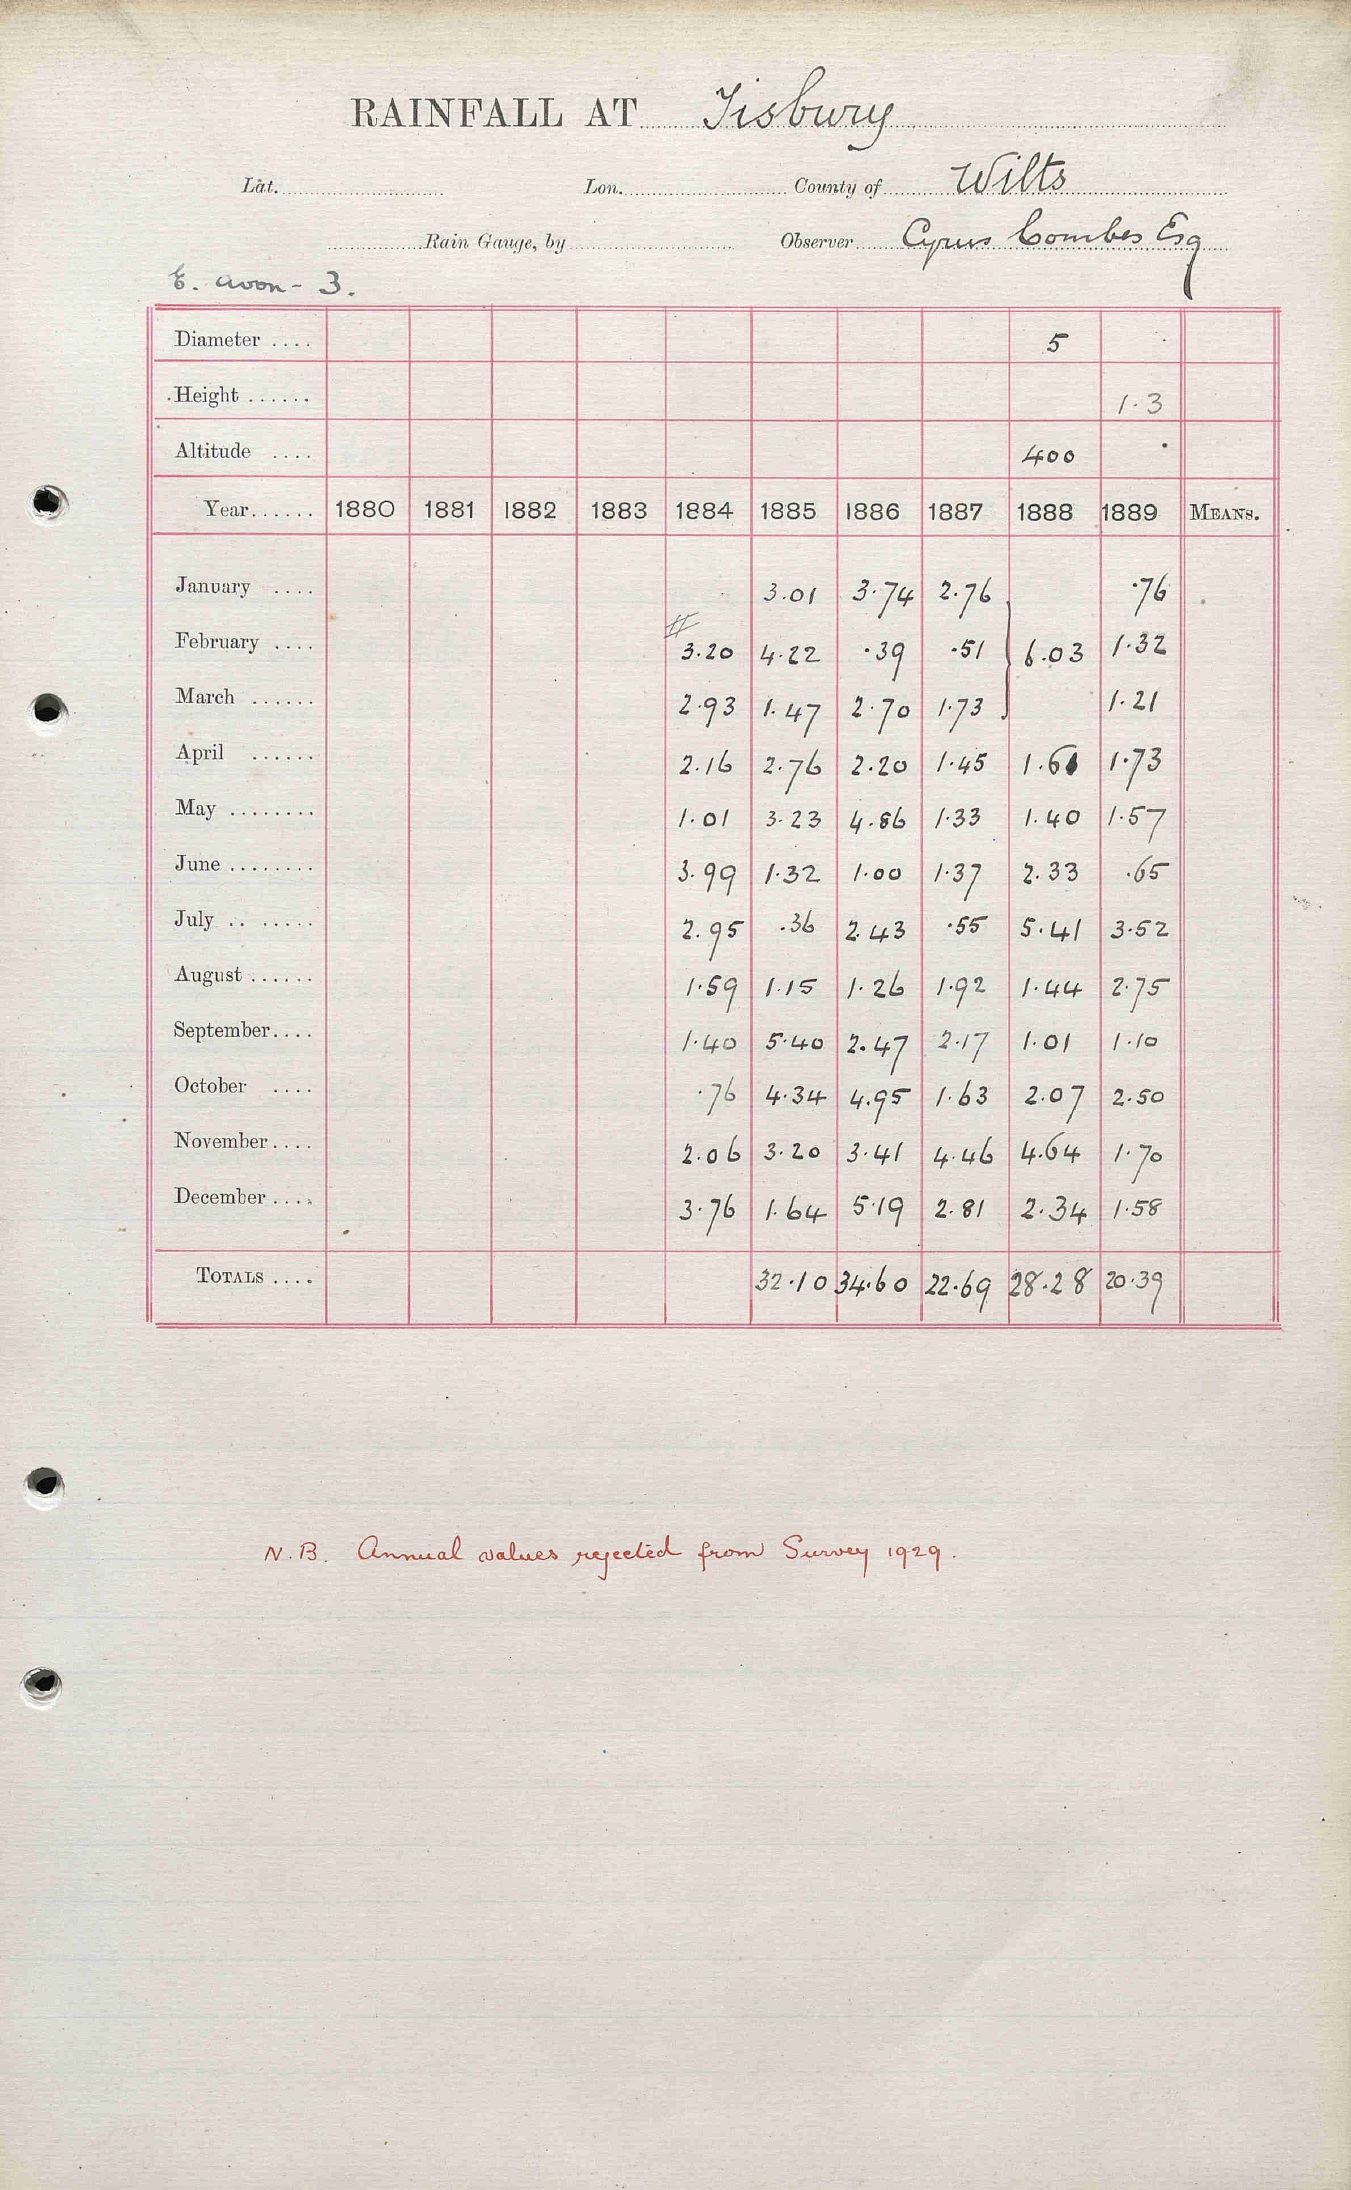 RAINFALL AT Tisbury
Lat. Lon. County of Wilts
Rain Gauge, by Observer Cyrus Combes Esq
E. Avon - 3.
Diameter .... 5
Height ...... 1.3
Altitude .... 400
Year...... 1880 1881 1882 1883 1884 1885 1886 1887 1888 1889 MEANS.
January .... 3.01 3.74 2.76 .76
February .... 3.20 4.22 .39 .51 6.03 1.32
March ...... 2.93 1.47 2.70 1.73 1.21
April ...... 2.16 2.76 2.20 1.45 1.61 1.73
May ........ 1.01 3.23 4.86 1.33 1.40 1.57
June ........ 3.99 1.32 1.00 1.37 2.33 .65
July .. ..... 2.95 .36 2.43 .55 5.41 3.52
August ...... 1.59 1.15 1.26 1.92 1.44 2.75
September.... 1.40 5.40 2.47 2.17 1.01 1.10
October .... .76 4.34 4.95 1.63 2.07 2.50
November.... 2.06 3.20 3.41 4.46 4.64 1.70
December .... 3.76 1.64 5.19 2.81 2.34 1.58
TOTALS .... 32.10 34.60 22.69 28.28 20.39
N.B. Annual values rejected from Survey 1929.